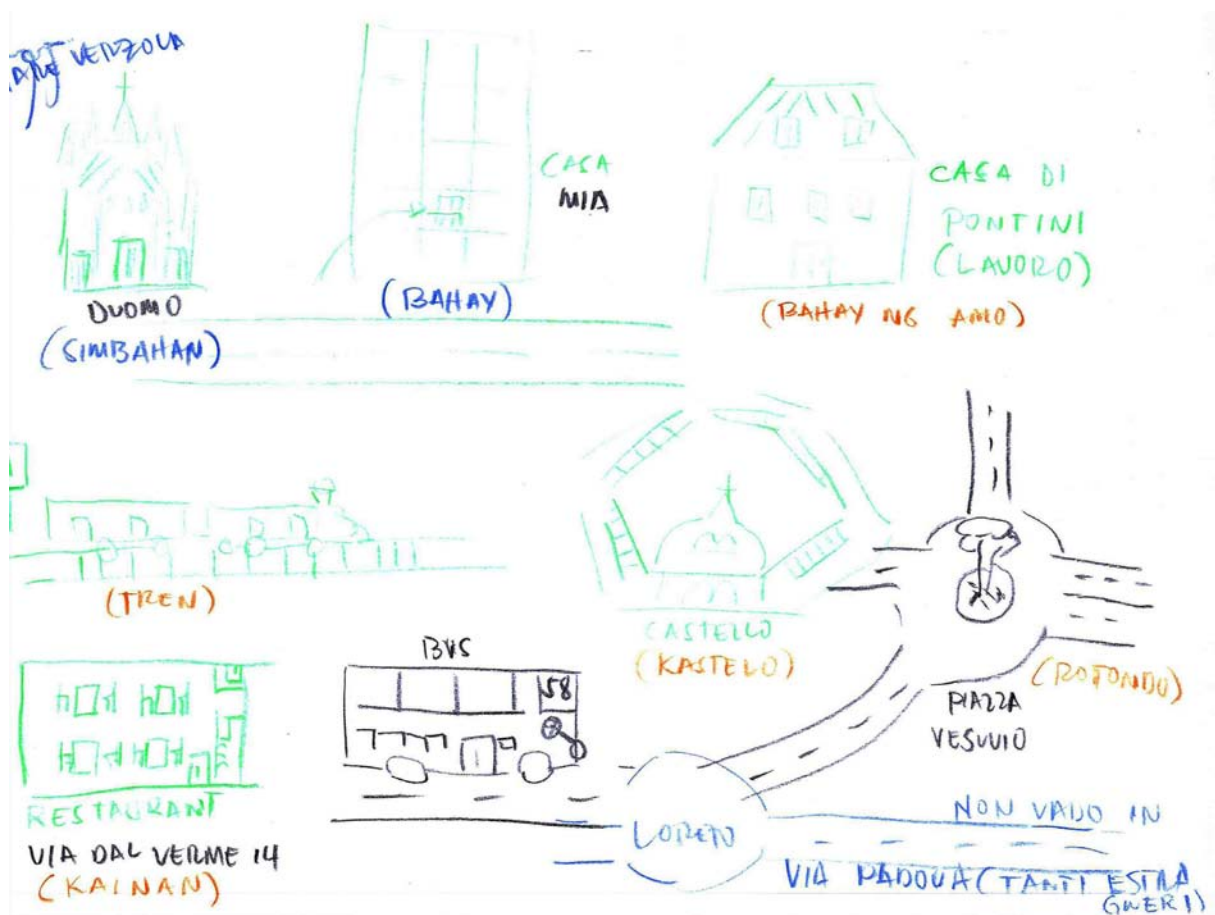 VERZOLA
DUOMO
(SIMBAHAN)
CASA
MIA
(BAHAY)
CASA DI
PONTINI
(LAVORO)
(BAHAY NG AMO)
(TREN)
CASTELLO
(KASTELO)
(ROTONDO)
PIAZZA
VESUVIO
BUS
58
RESTAURANT
VIA DAL VERME 14
(KAINAN)
LORETO
NON VADO IN
VIA PADOVA (TANTI ESTRA
GNERI)